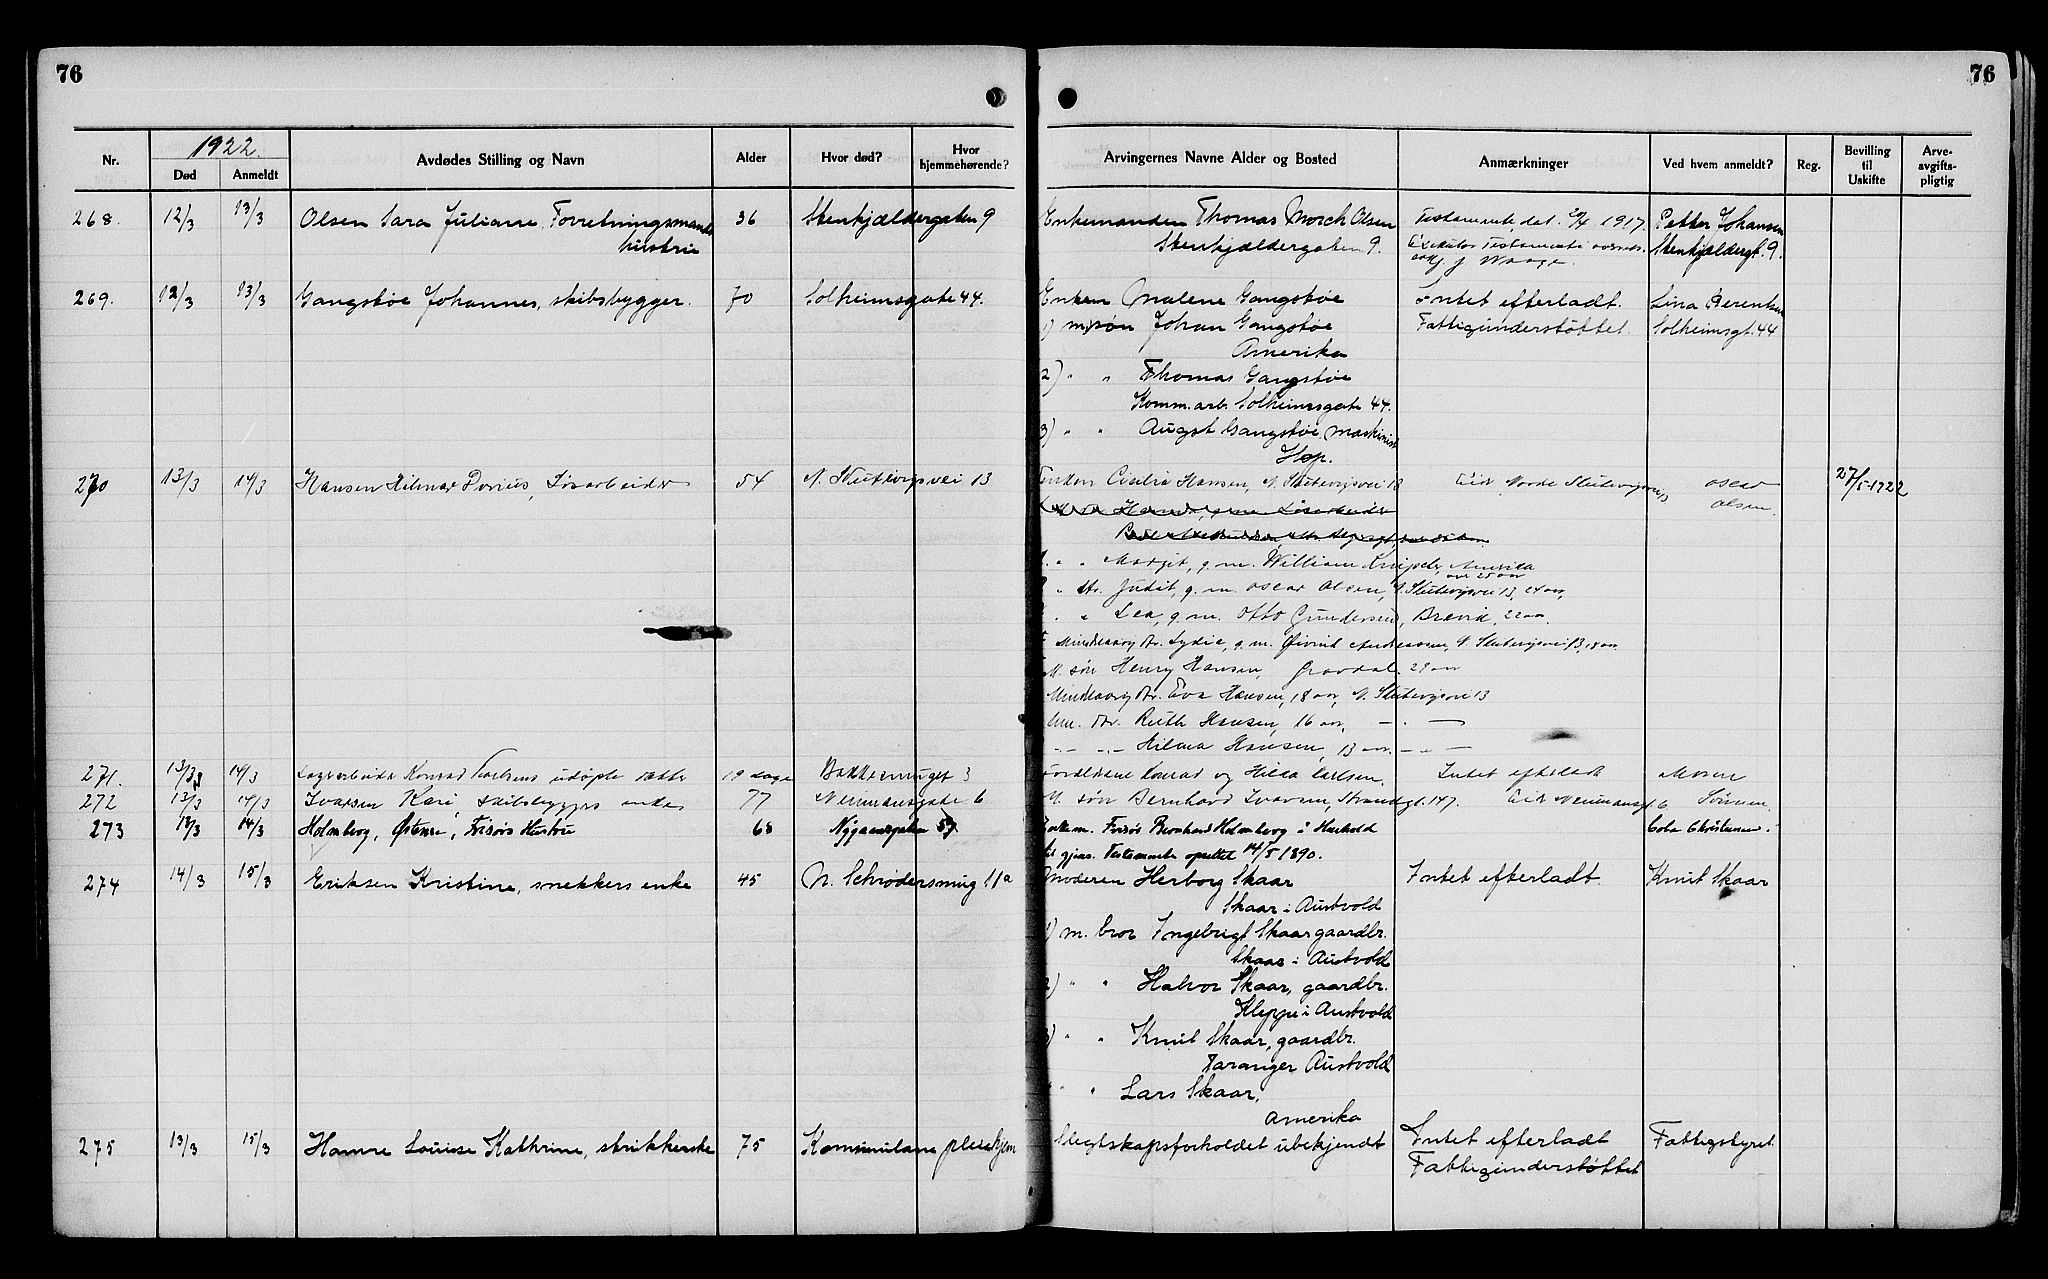 76
76
1922.
Nr. Død Anmeldt Avdødes Stilling og Navn Alder Hvor død? Hvor hjemmehørende? Arvingernes Navne Alder og Bosted Anmærkninger Ved hvem anmeldt? Reg. Bevilling til Uskifte Arve-avgifts-pligtig
268. 12/3 13/3 Olsen Sara Juliane Forretningsmands 36 Stenkjældergaten 9 Enkemanden Thomas Morch Olsen Testamente dat. 1917. Petter Johansen
hustru Stenkjældergaten 9. Testamente Stenkjældergt. 9.
269. 12/3 13/3 Gangstøe Johannes, skibsbygger. 70 Solheimsgate 44. Enken Malene Gangstøe Intet efterladt. Lina Berentsen
1) m. søn Johan Gangstøe Fattigunderstøttet. Solheimsgt. 44
Amerika
2) " " Thomas Gangstøe
Komm. arb. Solheimsgate 44.
3) " " Augst Gangstøe, maskinist
Hop.
270 13/3 14/3 Hansen Hilmar Dorius, Løsarbeider 54 N. Skutevigsvei 13 Enken Cecilie Hansen, N. Skutevigsvei 13 Eier Nordre Skutevigsvei 13 Oscar 27/5-1922
Olsen.
" " Margit, g. m. William Amerika
over 25 aar
" dtr. Judit, g. m. Oscar Olsen, N. Skutevigsvei 13, 24 aar,
" " Lea, g. m. Otto Gundersen, Brevik, 22 aar.
Mindreaarig dtr. Lydia, g. m. Øivind Andreassen, N. Skutevigsvei 13, 18 aar.
M. søn Henry Hansen, Gravdal 29 aar
Mindreaarig dtr. Eva Hansen, 18 aar, N. Skutevigsvei 13
Um. dtr. Ruth Hansen, 16 aar, — . —
— — Hilma Hansen, 13 aar — " —
271. 13/3 14/3 Lagerarbeider Konrad Carlsens udøpte datter 19 dage Bakkesmuget 3 Forældrene Konrad og Hilda Carlsen, Intet efterladt Moren
272 13/3 14/3 Ivarsen Kari skibsbyggers enke 77 Neumansgate 6 M. søn Bernhard Ivarsen, Strandgt. 147. Eier Neumansgt 6 Sønnen.
273 13/3 14/3 Holmberg, Østense, Frisørs Hustru 68 Nygaardsgaten 57 Enkem. Frisør Bernhard Holmberg i Henhold Christensen.
til gjens. Testamente oprettet 14/5 1890.
274 14/3 15/3 Eriksen Kristine, snekkers enke 45 N. Schrødersmug 11a Moderen Herborg Skaar Intet efterladt. Knut Skaar
Skaar i Austvold
1) m. bror Ingebrigt Skaar gaardbr.
Skaar i Austvold
2) " " Halvor Skaar, gaardbr.
Kleppe i Austvold
3) " " Knut Skaar, gaardbr.
Taranger Austvold
" " Lars Skaar,
Amerika
275 13/3 15/3 Hamre Louise Kathrine, strikkerske 75 Kommunlane pleiehjem Slegtskapsforholdet ubekjendt Intet efterladt Fattigstyret
Fattigunderstøttet